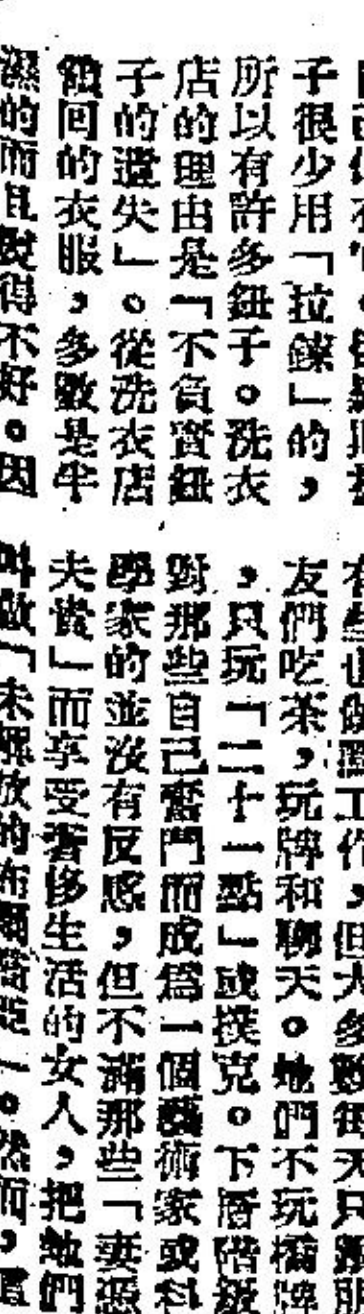 子很少用「拉鍊」的，
所以有許多鈕子。洗衣
店的理由是「不負責鈕
子的遺失」。從洗衣店
領回的衣服，多數是半
濕的而且熨得不好。因
有些也做點工作，但大多數每天只跟朋
友們吃茶，玩牌和聊天。她們不玩橋牌
，只玩「二十一點」或撲克。下層階級
對那些自己奮鬥而成爲一個藝術家或科
學家的並沒有反感，但不滿那些「妻憑
夫貴」而享受奢侈生活的女人，把她們
叫做「未解放的布爾喬亞」。然而，